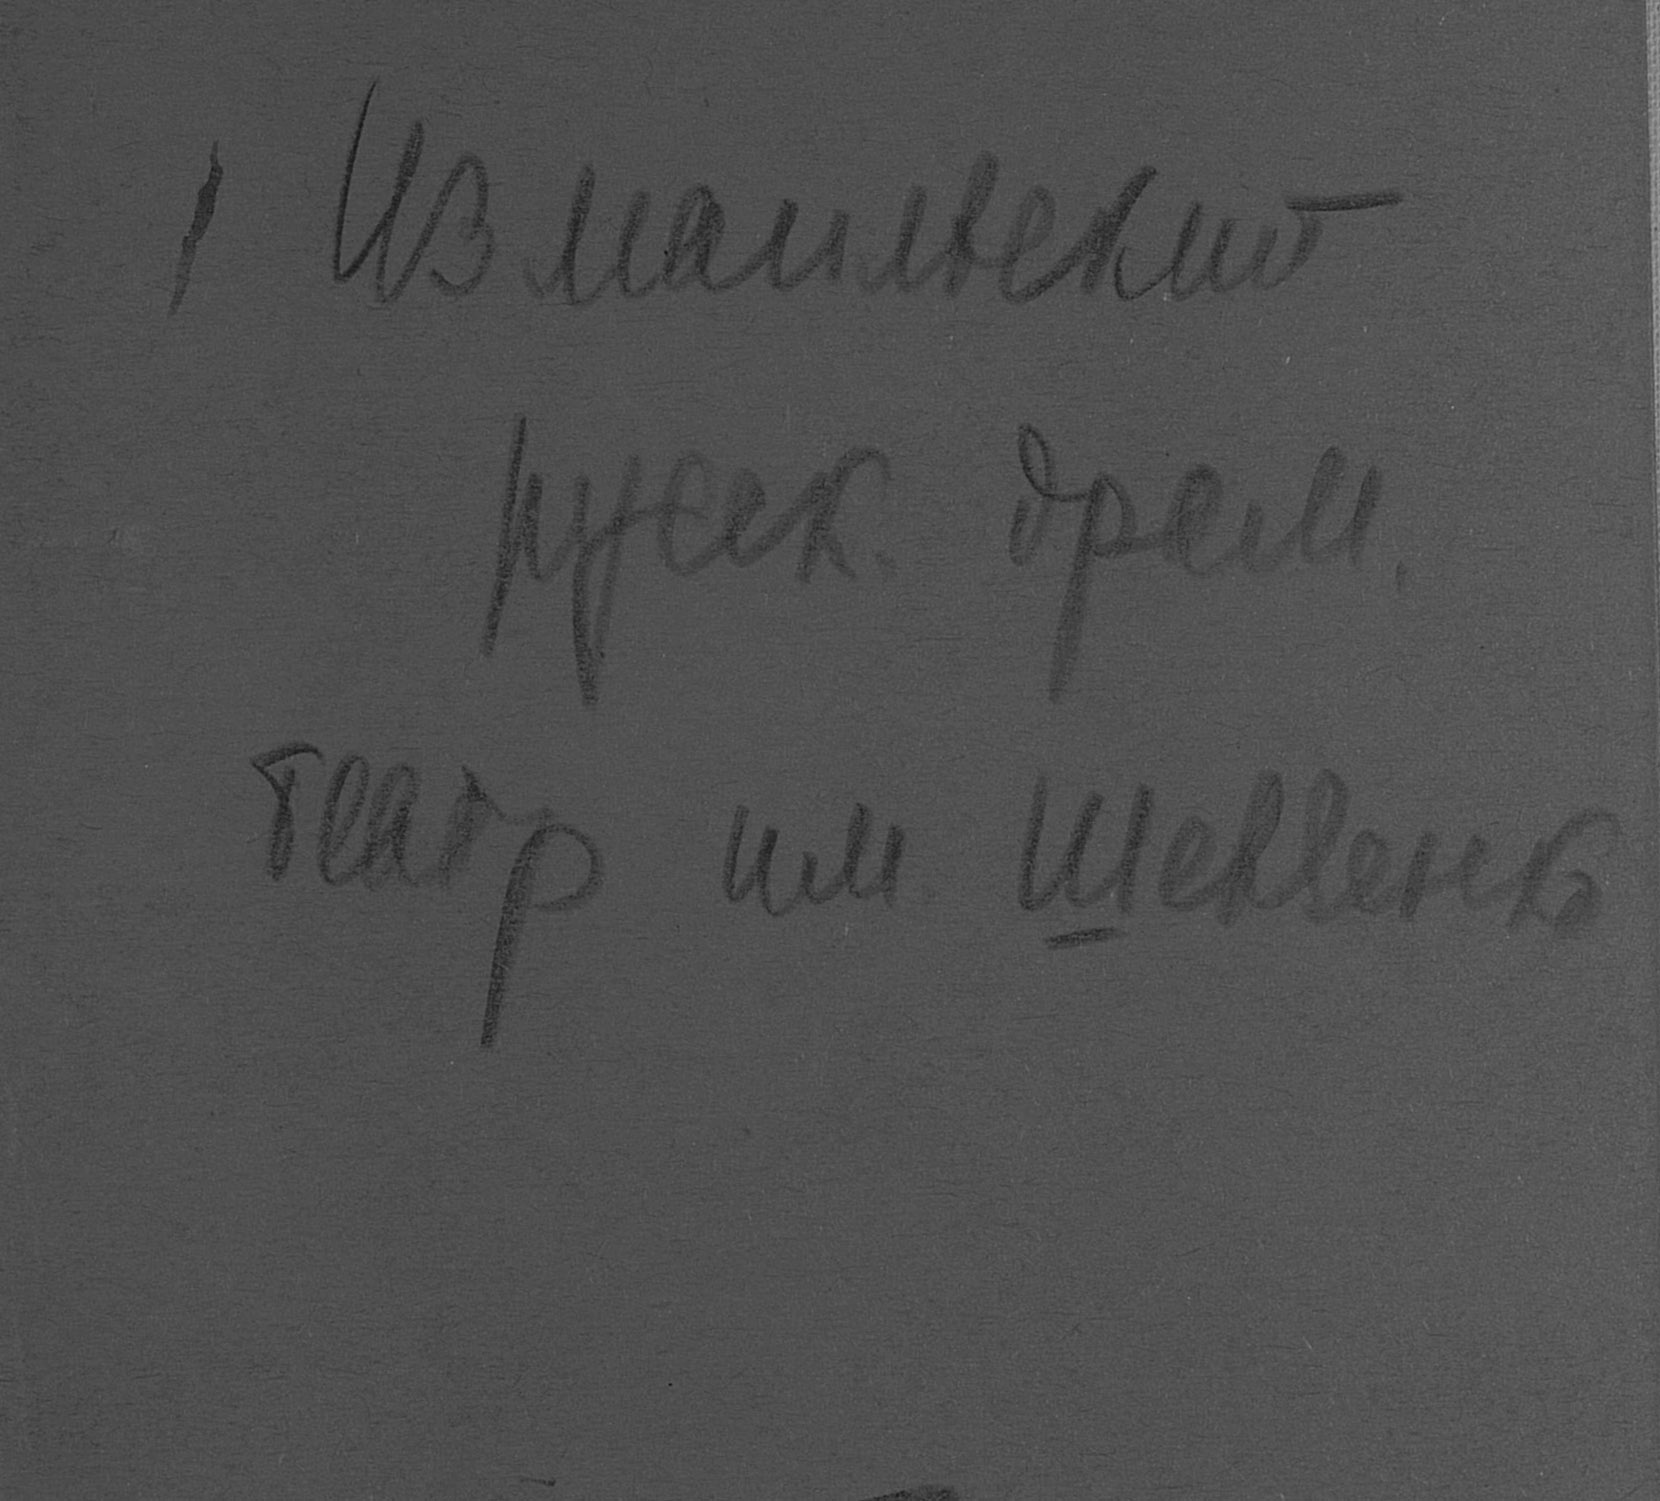 Измаильский
русск. драм.
театр им. Шевченко